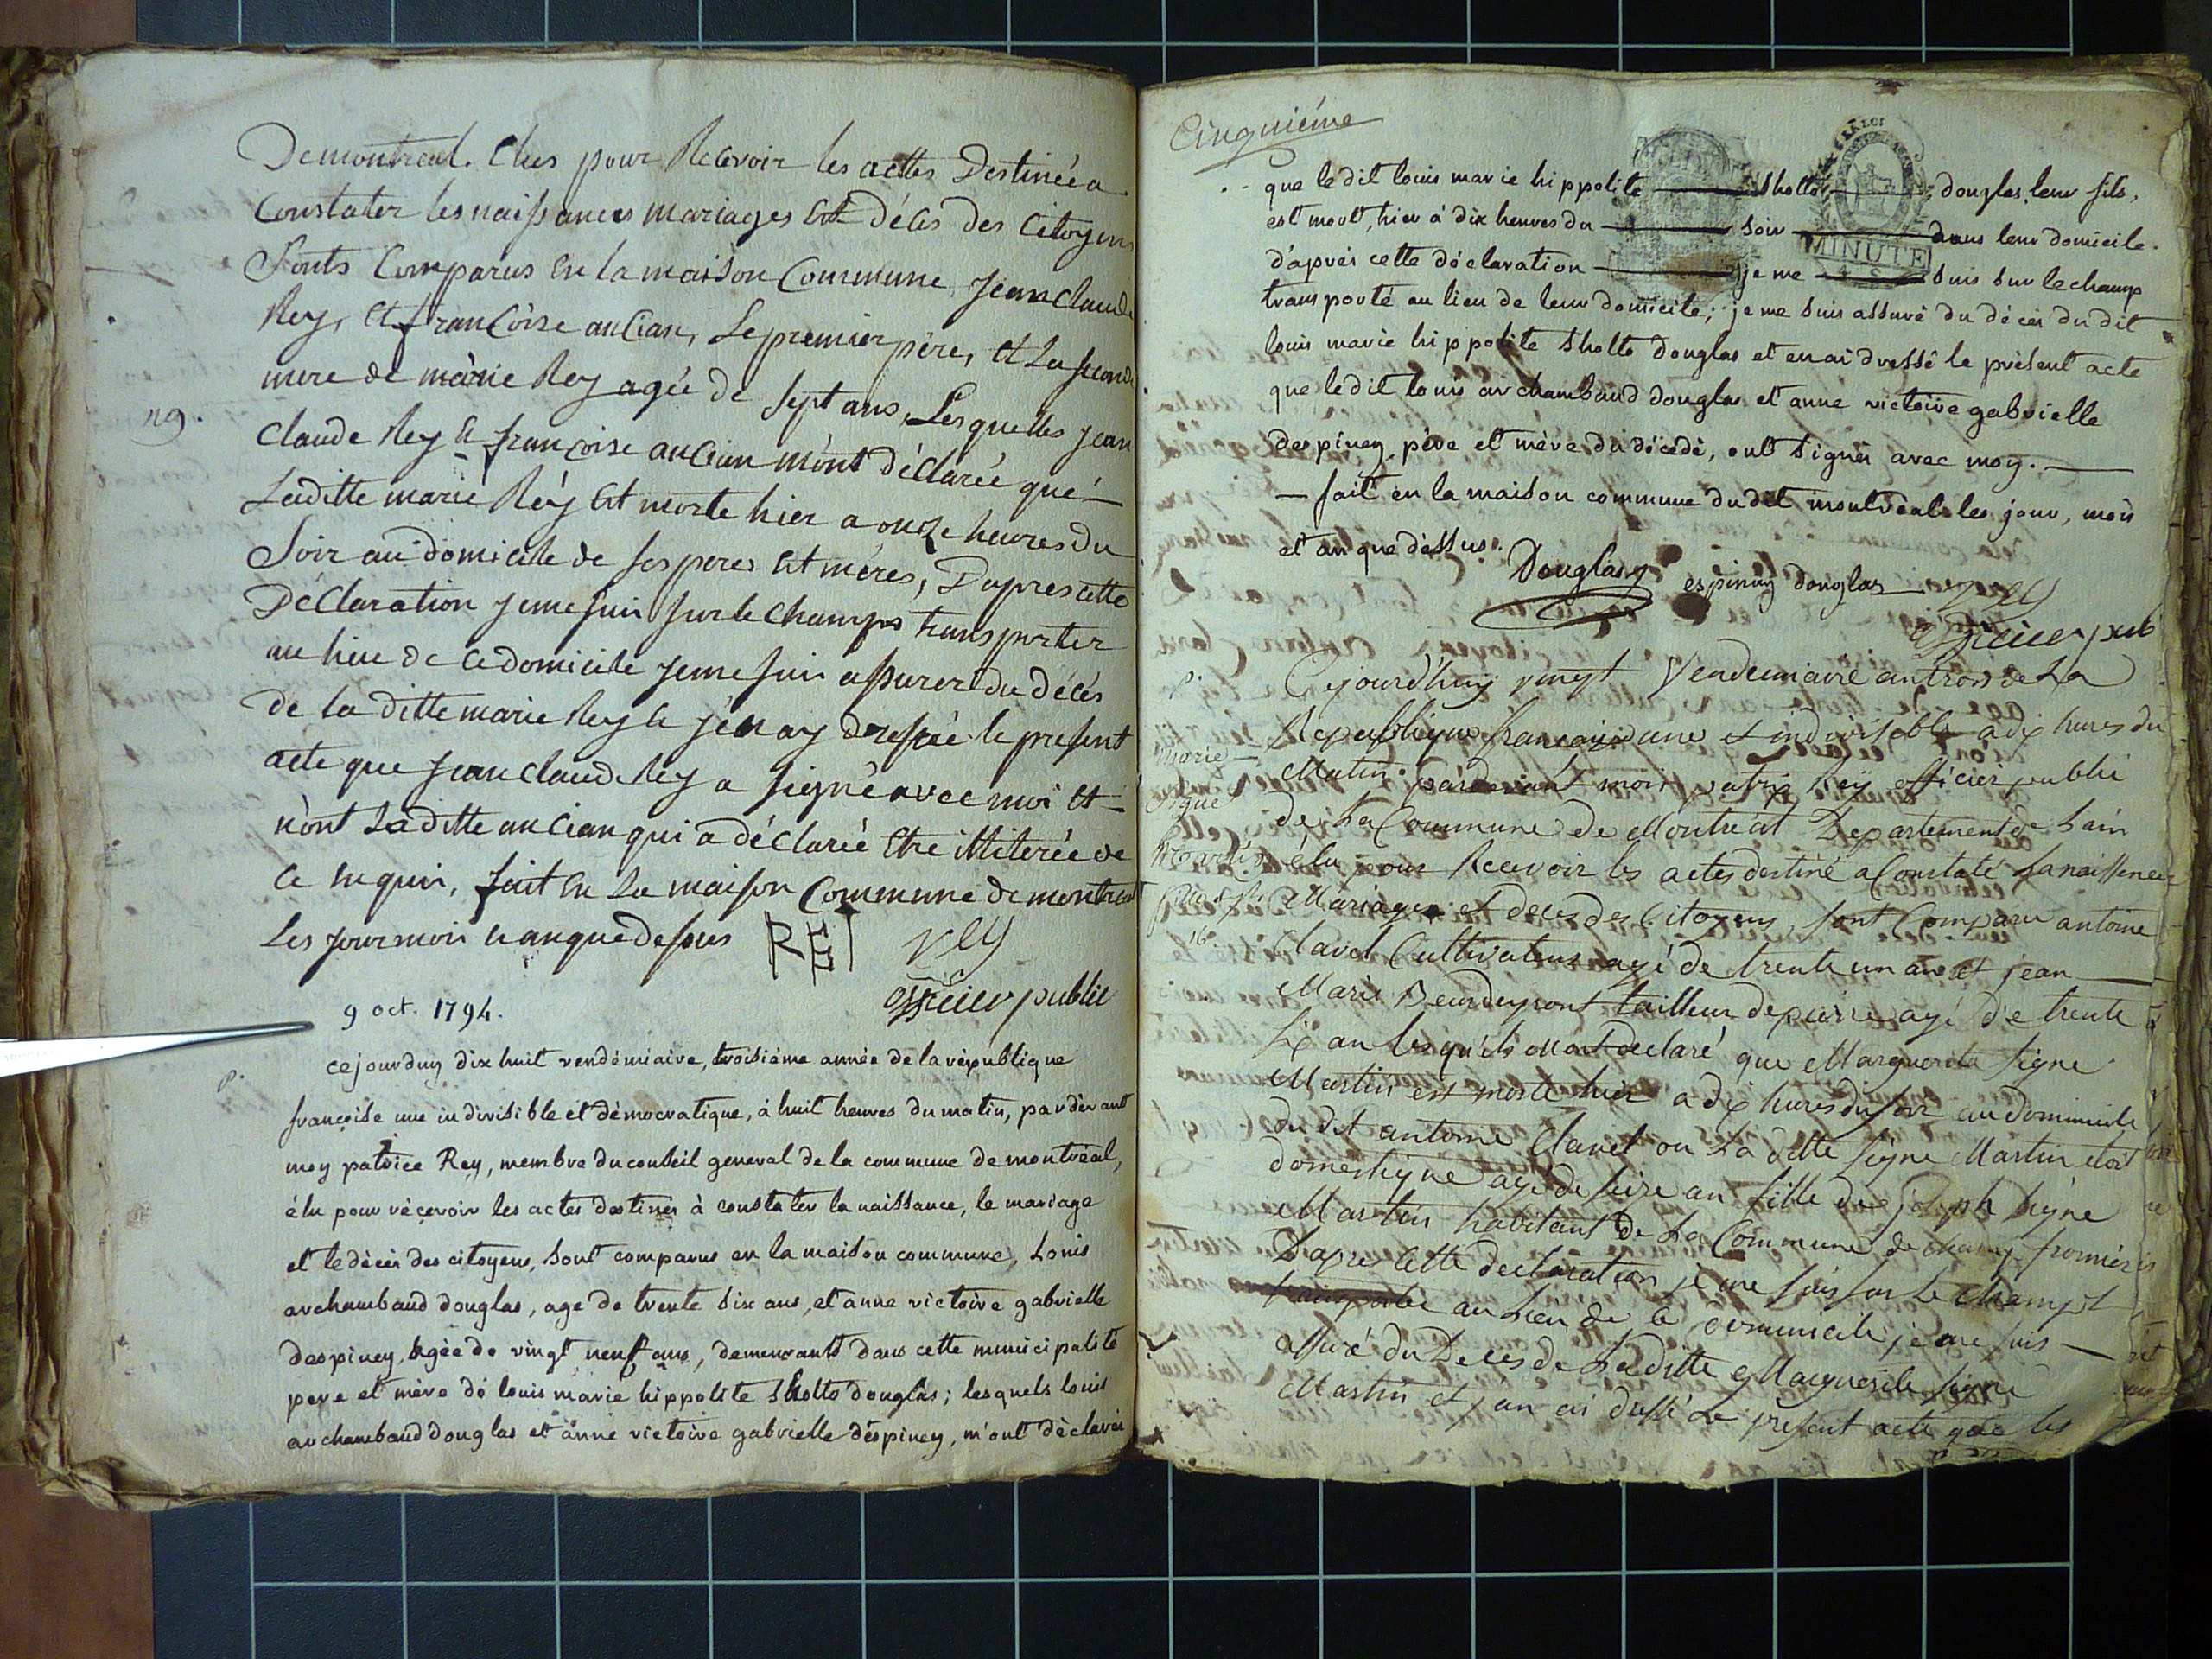 Demontreal. Elus pour Recevoir les acttes Destinéea
Constater les naissances mariages Et décès des Citoyens
Sonts Comparus En la maison Commune, Jean Claude
Rey, Et françoise ancian, Le premier père, Et La seconde
mere de marie Rey agée de sept ans, Lesquelles jean
ng.
Claude Rey Et françoise ancian m'ont déclarée que
Laditte marie Rey Est morte hier a onze heures du
Soir au domicile de ses peres Et mères, D'apres cette
Déclaration je me suis sur le Champs transporter
au lieu de ce domicile je me suis assurer du décès
de la ditte marie Rey Et j'en ay dressée le present
acte que jean claude Rey a signé avec moi Et
n'ont Laditte ancian qui a déclarée Etre illiterée de
ce enquis, fait En La maison Commune de montreal
Les jour mois Et an que dessus REI Rey
officier public
9 oct. 1794.
p.
cejourduy dix huit vendémiaire, troisiéme année de la république
françoise une indivisible et démocratique, à huit heures du matin, pardevant
moy patrice Rey, membre du conseil general de la commune de montréal,
élu pour réçevoir les actes destinés à constater la naissance, le mariage
et le décès des citoyens, sont comparus en la maison commune, Louis
archambaud douglas, age de trente six ans, et anne victoire gabrielle
despiney, agée de vingt neuf ans, demeurants dans cette municipalité
pere et mère dé louis marie hippolite sholto douglas; lesquels louis
archambaud douglas et anne victoire gabrielle déspiney, m'ont déclaré
Cinquiéme
que le dit louis marie hippolite sholto douglas, leur fils,
est mort, hier à dix heures du soir dans leur domicile.
d'après cette déclaration je me suis sur le champ
MINUTE
transporté au lieu de leur domicile; je me suis assuré du décès du dit
louis marie hippolite sholto douglas et en ai dressé le présent acte
que le dit louis archambaud douglas et anne victoire gabrielle
despiney, père et mère du décédé, ont signés avec moy.
fait en la maison commune du dit montréal les jour, mois
et an que dessus.
Douglas espiney douglas Rey
officier pub
p.
Cejourd'huy vingt Vendemiaire an trois de La
Republique francaise une et indivisible a dix hures du
Marie
Matin. pardevant moi patrix Rey officier publi
Sigue
de La Commune de Montreal Departement de Lain
Martin
élu pour Recevoir les actes destiné a Constaté La naissence
Mariages et deces des Citoyens, sont Comparu antoine
16
Clavel Cultivateur agé de trente un ans et jean
Marie Beurdeymont tailleur de pierre agé de trente
Six an lesquels mont declaré que Marguerite Signe
Martin est morte hier a dix hures du soir au dommicile
du dit antoine Clavel ou La ditte signe Martin etoit
domestique agé de seize an fille de joseph Signe
Martin habitant de La Commune de
D'apres Cette declaration je me suis sur Le Champt
transporter au Lieu de Ce dommicile je me suis
assuré du Deces de Laditte Marguerite signe
Martin et j'an ai dressé Le present acte que les